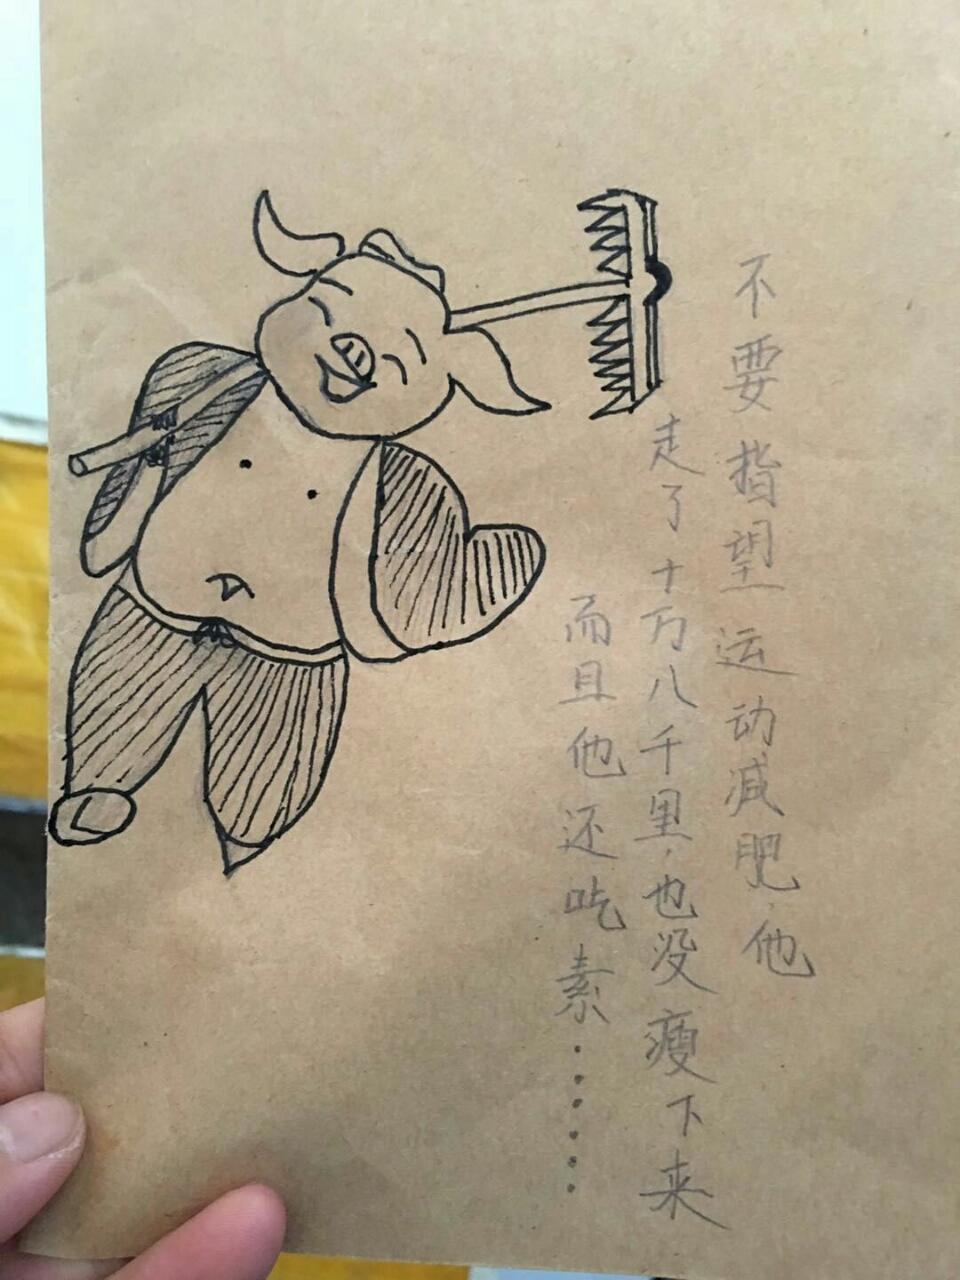 不要指望运动减肥,他
走了十万八千里,也没瘦下来
而且他还吃素······